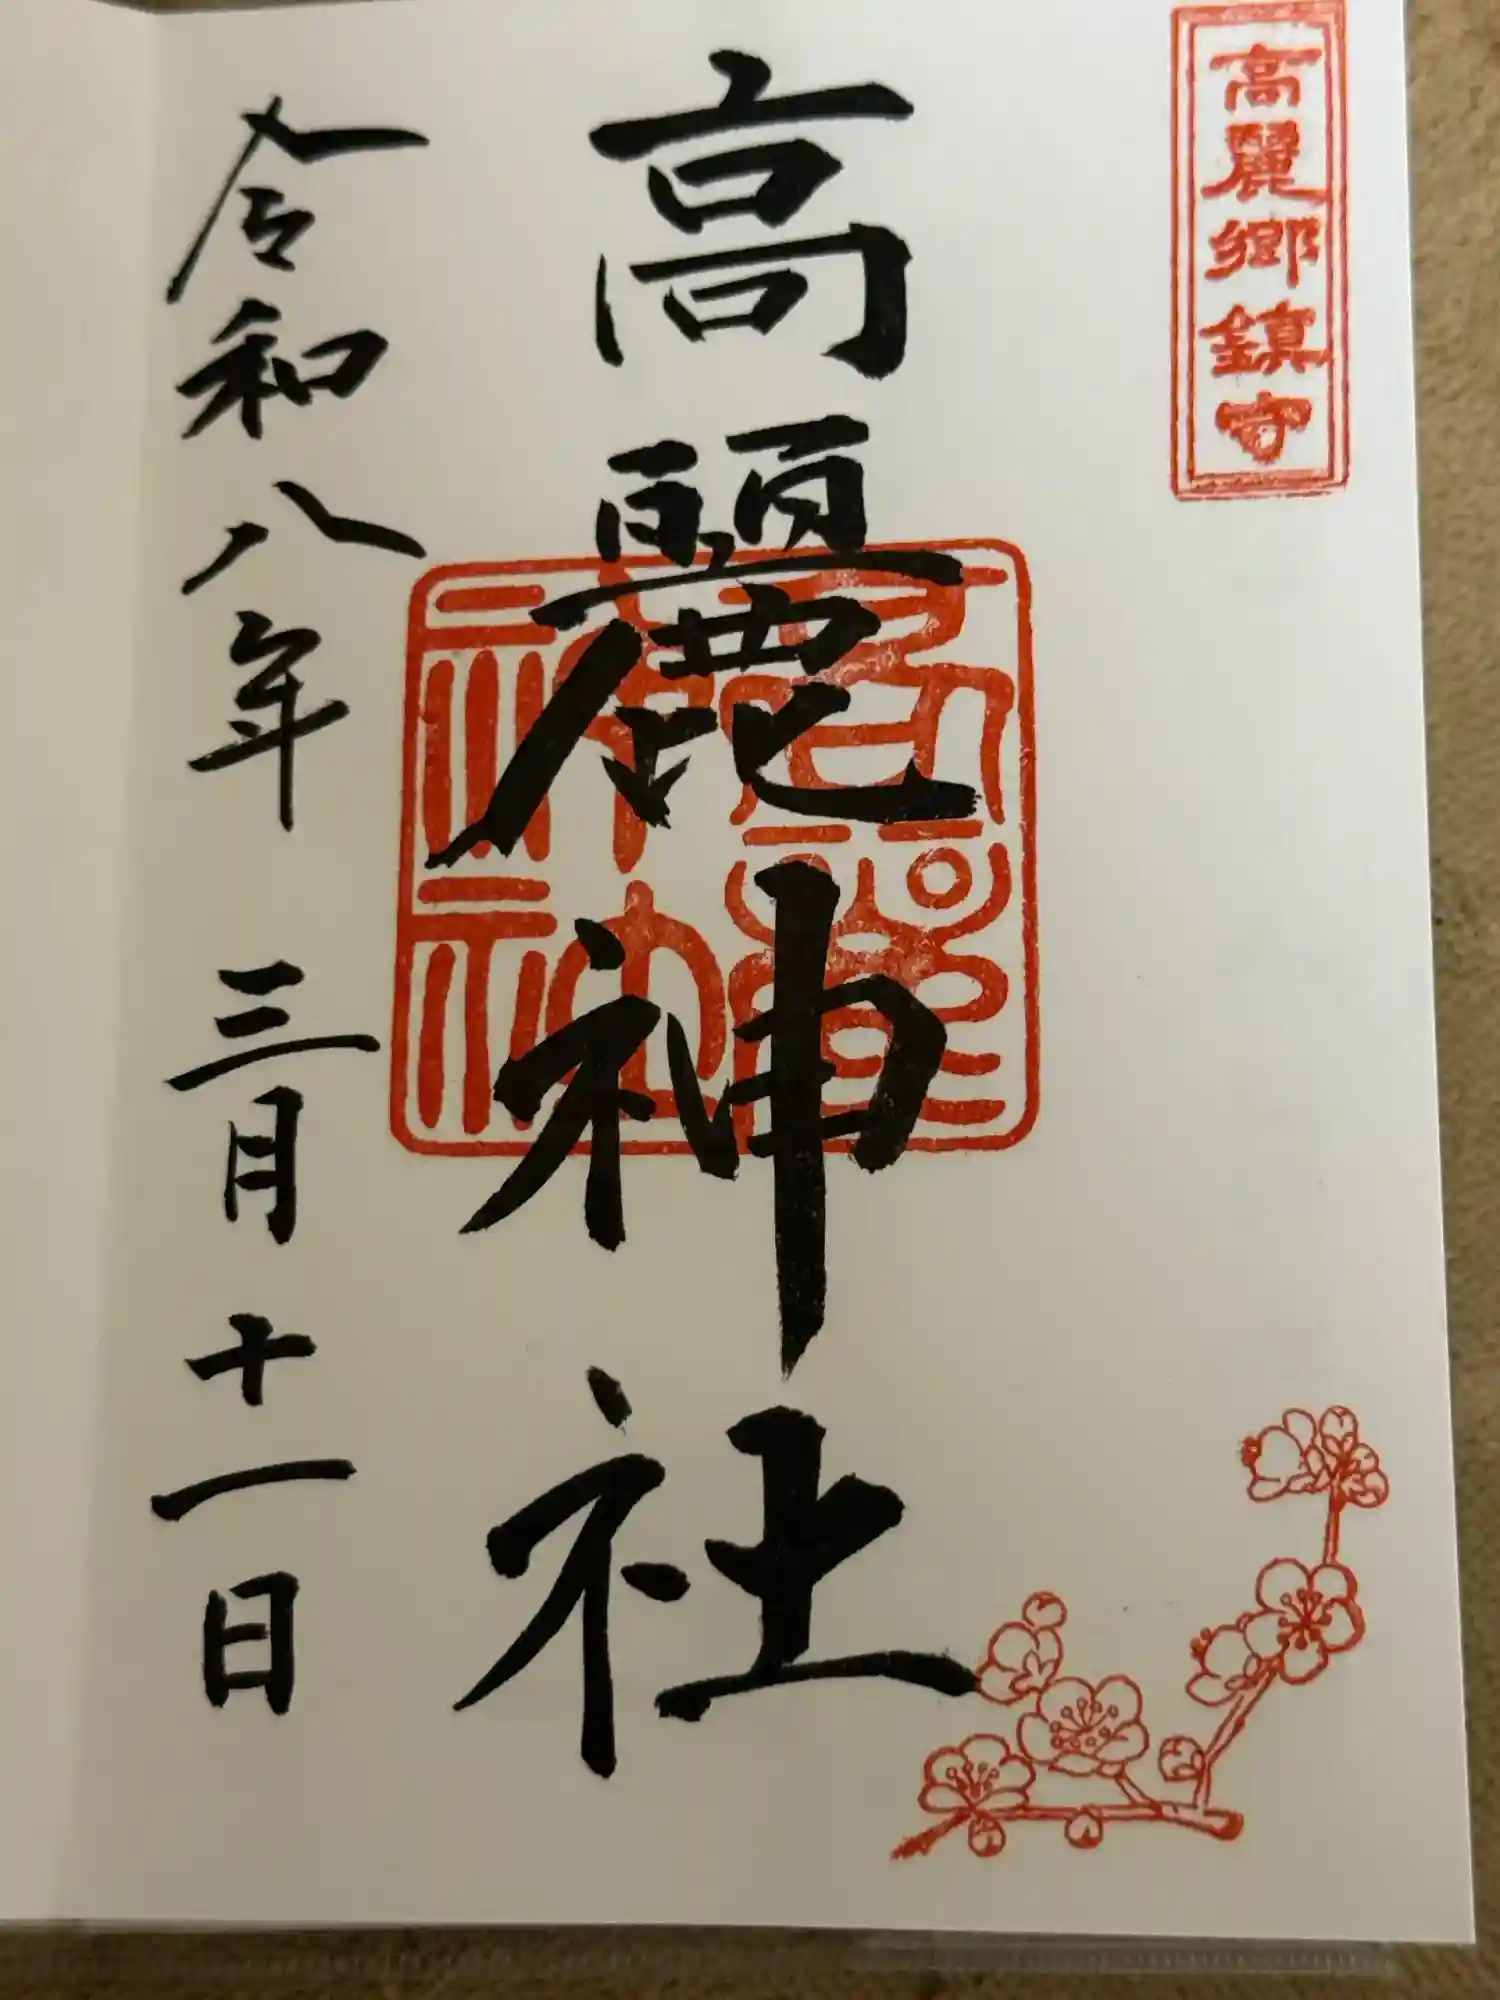 高麗郷鎮守
高麗神社
令和八年 三月十一日